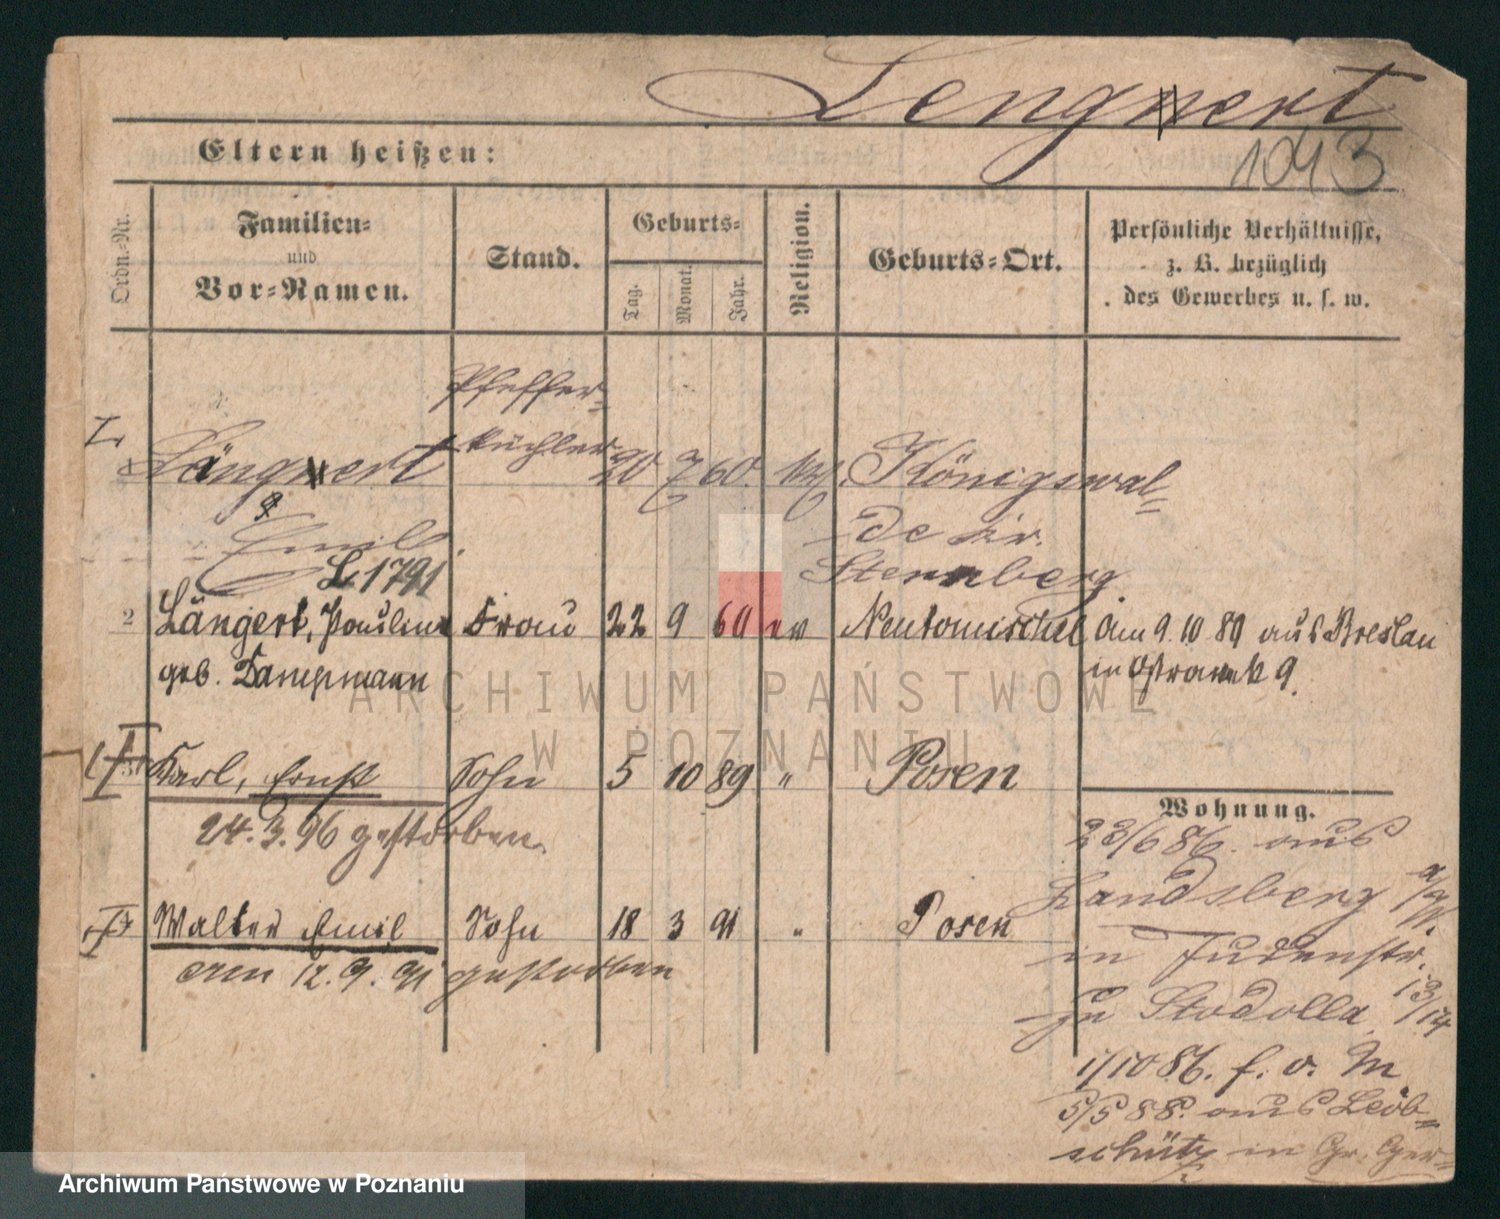 Lengnert
1043
Eltern heißen:
Ordn.-Nr.
Familien-
und
Vor-Namen.
Stand.
Geburts-
Tag.
Monat.
Jahr.
Religion.
Geburts-Ort.
Persönliche Verhältnisse,
z. B. bezüglich
des Gewerbes u. s. w.
Pfeffer-
küchler
Längnert 20 7 60. Königswal-
Emil. de Kr.
L. 1791 Sternberg.
2 Längert, Pauline Frau 22 9 60 ev Neutomischel Am 9. 10 89 aus Breslau
geb. Dampmann in 9.
Karl, Ernst Sohn 5 10 89 " Posen
Wohnung.
24. 3. 96 gestorben. 23/6 86. aus
Landsberg
Walter Emil Sohn 18 3 91 " Posen
in Judenstr.
am 12. 9. 91 gestorben
13/14
zu Stodolla
1/10 86. f. v. M
5/5 88. aus Leob-
schütz in Gr. Ger-
ARCHIWUM PAŃSTWOWE
W POZNANIU
Archiwum Państwowe w Poznaniu